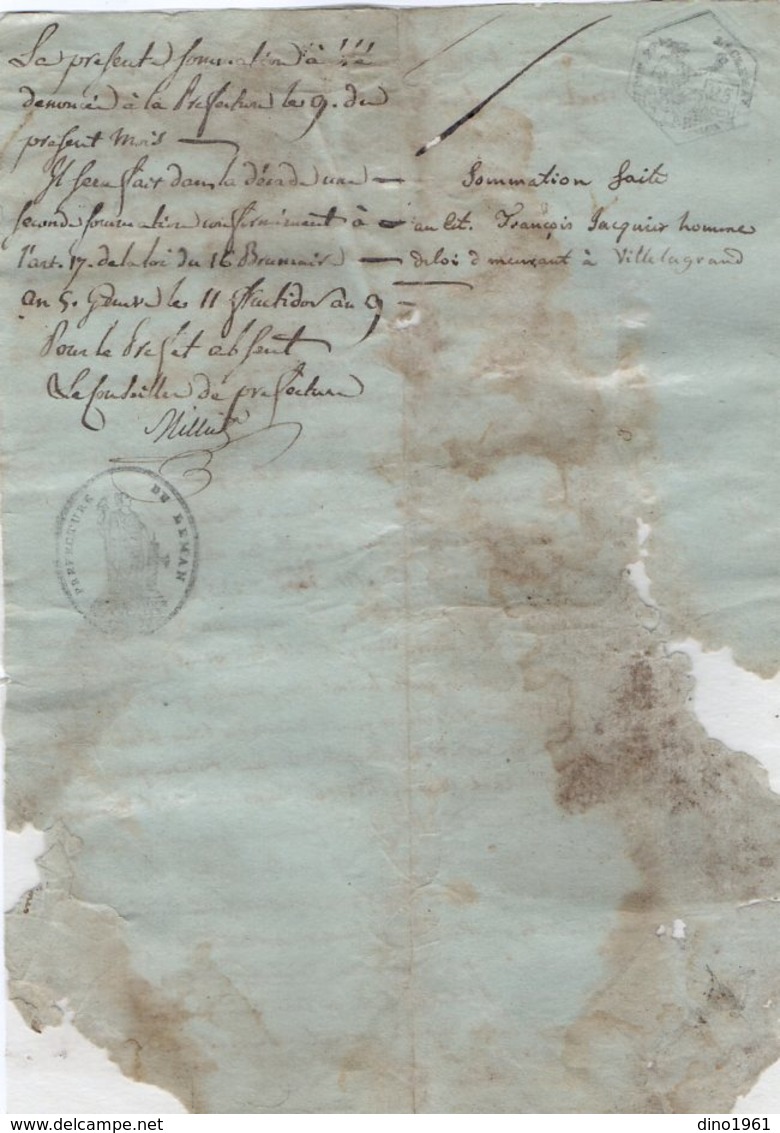 La presente sommation à été
denoncée à la Prefecture le 9. du
present mois —
Il sera fait dans la décade une —
seconde sommation conformément à —
l'art. 17. de la loi du 16 Brumaire —
an 5. Genève le 11 fructidor an 9 —
Pour le Prefet absent
Le Conseiller de prefecture
PREFECTURE DU LEMAN
Sommation faite
au cit. François Jacquier homme
de loi demeurant à Villelagrand
dino1961